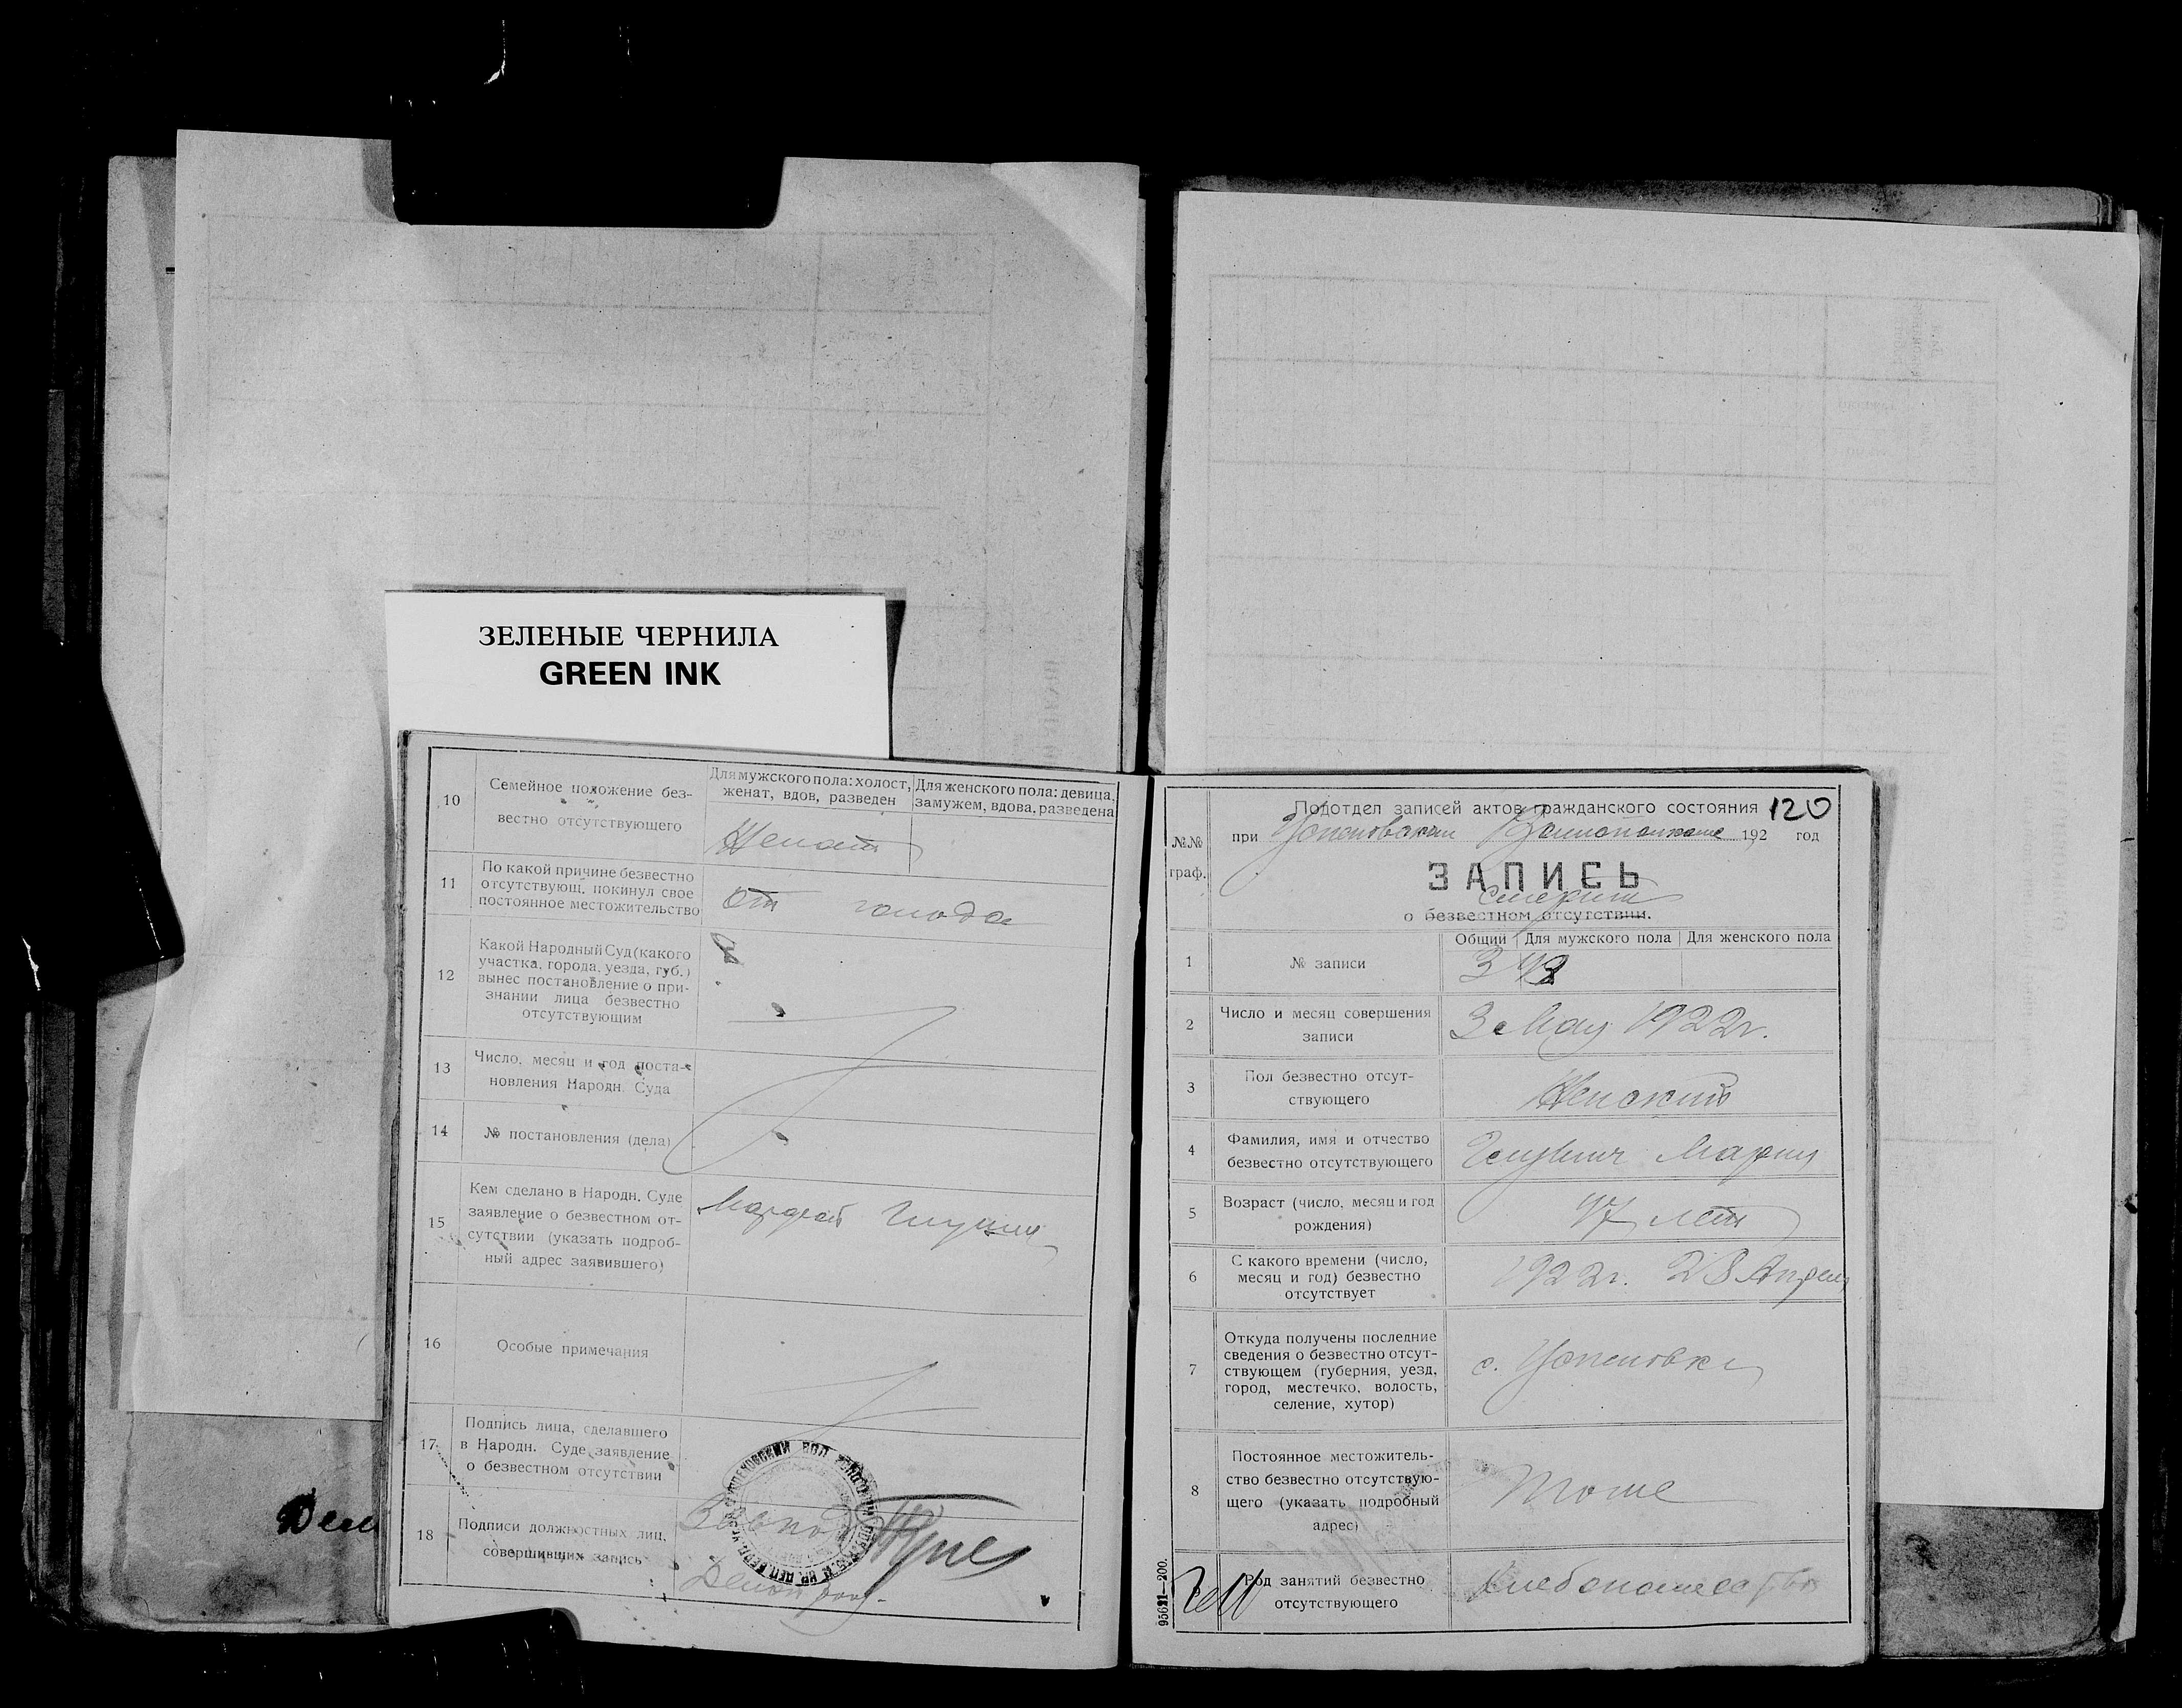 ЗЕЛЕНЫЕ ЧЕРНИЛА
GREEN INK
10
Семейное положение без-
вестно отсутствующего
Для мужского пола: холост,
женат, вдов, разведен
Для женского пола: девица,
замужем, вдова, разведена
Женат
11
По какой причине безвестно
отсутствующ. покинул свое
постоянное местожительство
От голода
12
Какой Народный Суд (какого
участка, города, уезда, губ.)
вынес постановление о при-
знании лица безвестно
отсутствующим
13
Число, месяц и год поста-
новления Народн. Суда
14
№ постановления (дела)
15
Кем сделано в Народн. Суде
заявление о безвестном от-
сутствии (указать подроб-
ный адрес заявившего)
16
Особые примечания
17
Подпись лица, сделавшего
в Народн. Суде заявление
о безвестном отсутствии
18
Подписи должностных лиц,
совершивших запись
Подотдел записей актов гражданского состояния
120
при 192 год
№№
граф.
ЗАПИСЬ
смерти
о безвестном отсутствии.
Общий
Для мужского пола
Для женского пола
1
№ записи
2
Число и месяц совершения
записи
3 Мая 1922г.
3
Пол безвестно отсут-
ствующего
Женский
4
Фамилия, имя и отчество
безвестно отсутствующего
Мария
5
Возраст (число, месяц и год
рождения)
47 лет
6
С какого времени (число,
месяц и год) безвестно
отсутствует
1922г. 28 Апреля
7
Откуда получены последние
сведения о безвестно отсут-
ствующем (губерния, уезд,
город, местечко, волость,
селение, хутор)
с.
8
Постоянное местожитель-
ство безвестно отсутствую-
щего (указать подробный
адрес)
Тоже
Род занятий безвестно
отсутствующего
Хлебопашество
95621—200.